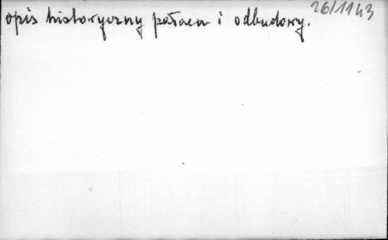 26/1143
opis historyczny pałacu i odbudowy.